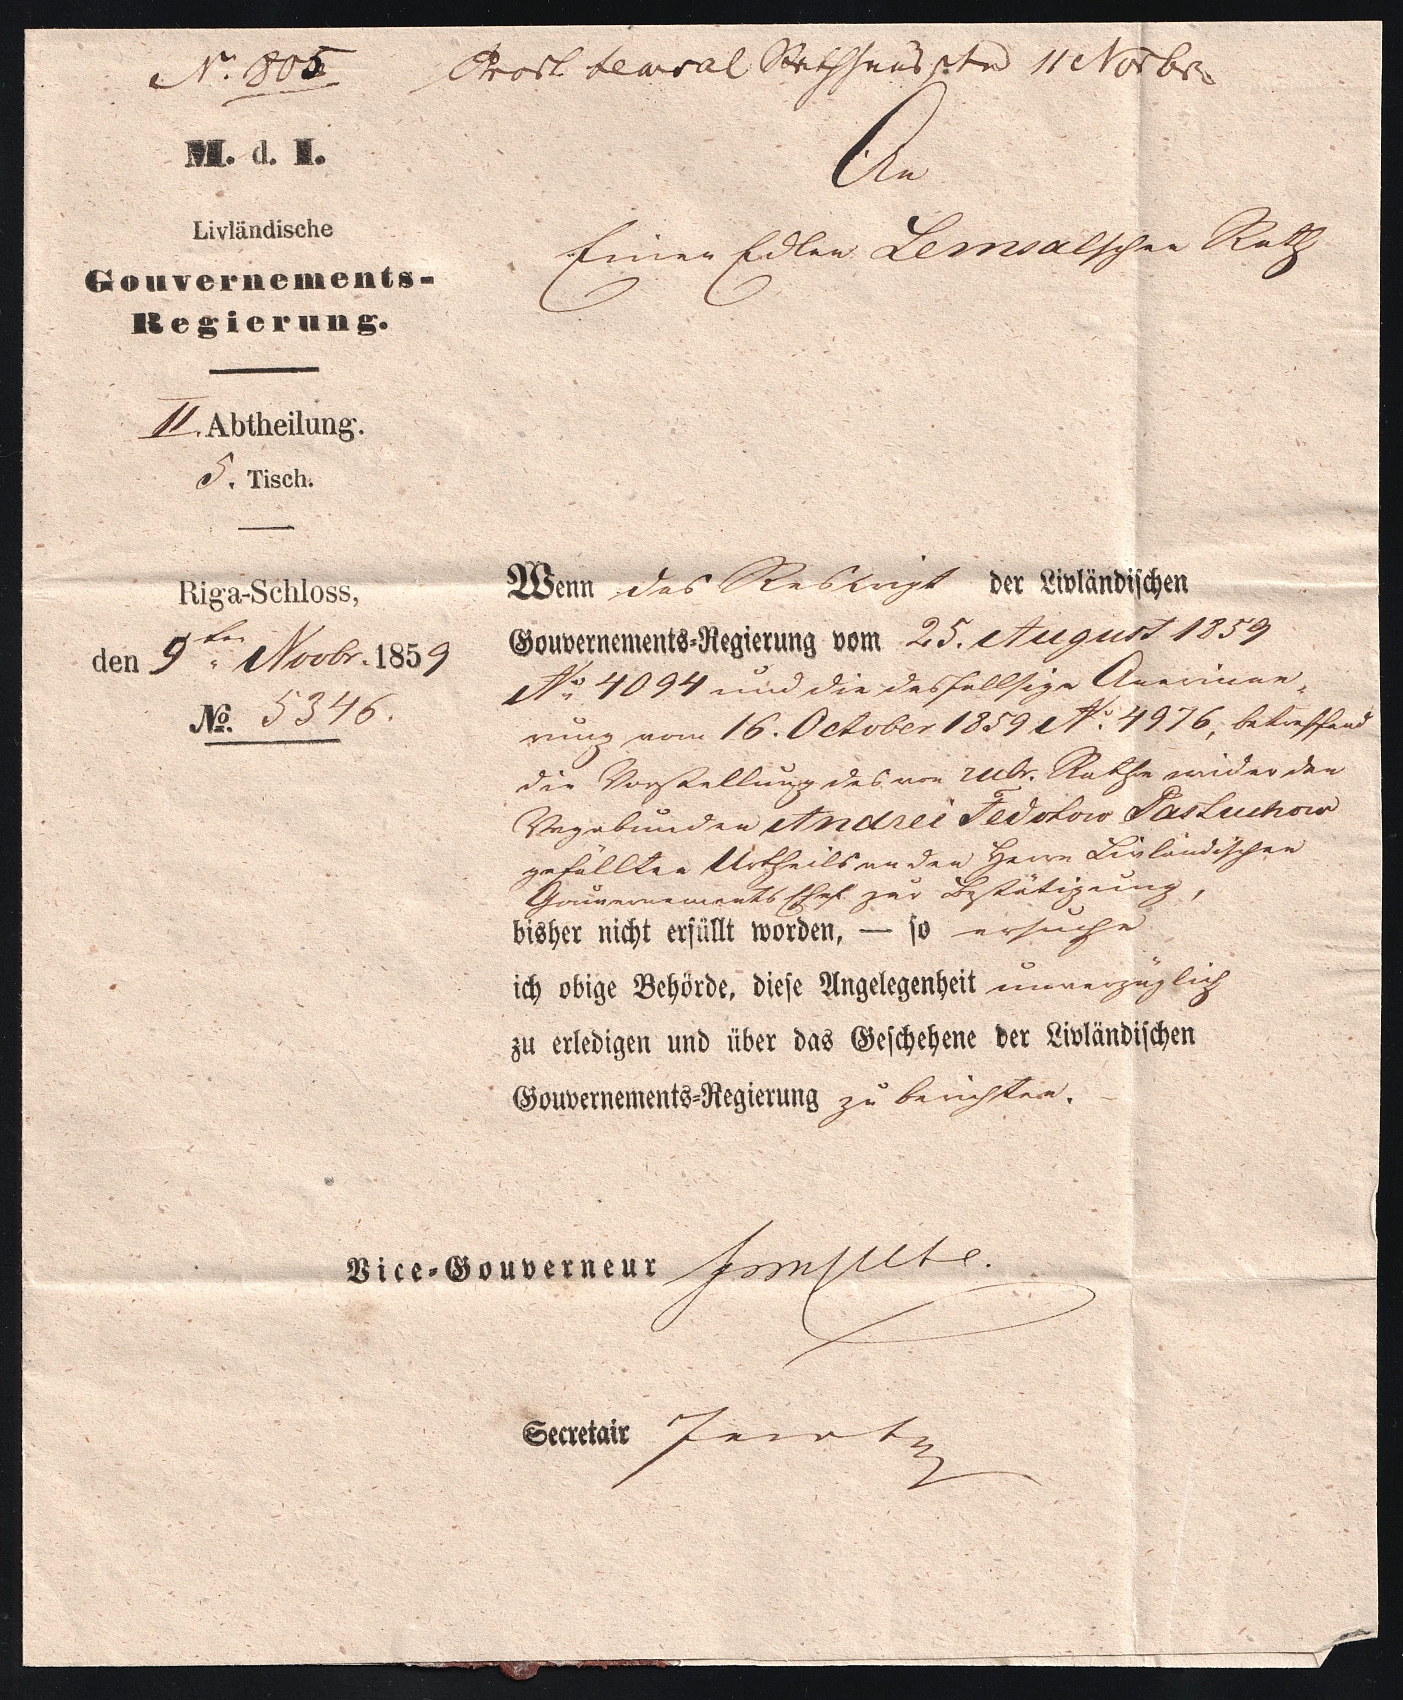 N. 805
Prod. Lemsal Rathhaus den 11 Novbr.
M. d. I.
Livländische
Gouvernements-
Regierung.
II. Abtheilung.
5. Tisch.
Riga-Schloss,
den 9ten Novbr. 1859
No. 5346.
An
Einen Edlen Lemsalschen Rath
Wenn das Rescript der Livländischen
Gouvernements-Regierung vom 25. August 1859
No. 4094 und die desfallsige Anerinne-
rung vom 16. October 1859 N. 4976, betreffend
die Vorstellung des von rubr. Rathe wider den
Vagabunden Andrei Fedotow Pastuchow
gefällten Urtheils an den Herrn Livländischen
Gouvernements Chef zur Bestätigung,
bisher nicht erfüllt worden, — so ersuche
ich obige Behörde, diese Angelegenheit unverzüglich
zu erledigen und über das Geschehene der Livländischen
Gouvernements-Regierung zu berichten.
Vice-Gouverneur
Secretair